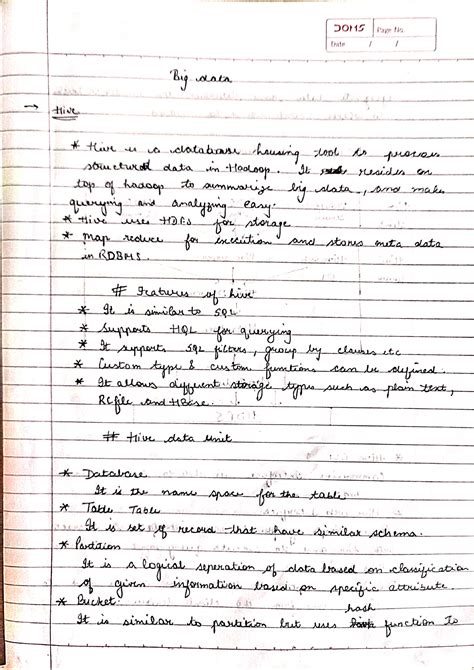 JOMS
Page No.
Date / /
Big data
→ Hive
* Hive is a database housing tool to process
structured data in Hadoop. It resides on
top of hadoop to summarize big data, and makes
querying and analyzing easy.
* Hive uses HDFS for storage
* Map reduce for execution and stores meta data
in RDBMS.
# Features of hive
* It is similar to SQL
* Supports HQL for querying
* It supports SQL filters, group by clauses etc
* Custom type & custom functions can be defined.
* It allows different storage types such as plain text,
RCfile and HBase.
# Hive data unit
* Database
It is the name space for the table
* Table Table
It is set of record that have similar schema.
* Partition
It is a logical seperation of data based on classification
of given information based on specific attribute.
* Bucket:
hash
It is similar to partition but uses function to